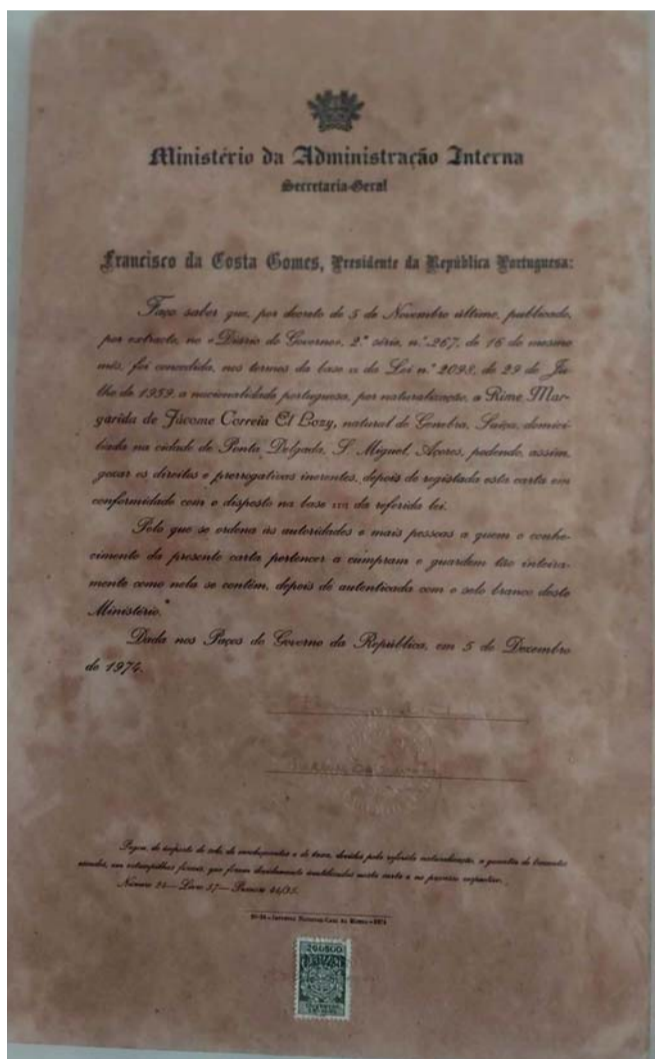 Ministério da Administração Interna
Secretaria-Geral
Francisco da Costa Gomes, Presidente da República Portuguesa:
Faço saber que, por decreto de 5 de Novembro último, publicado,
por extracto, no «Diário do Governo», 2.ª série, n.º 267, de 16 do mesmo
mês, foi concedida, nos termos da base da Lei n.º 2098, de 29 de Ju-
lho de 1959, a nacionalidade portuguesa, por naturalização, a Rime Mar-
garida de Jácome Correia El Bozy, natural de Genebra, Suíça, domici-
liada na cidade de Ponta Delgada, S. Miguel, Açores, podendo, assim,
gozar os direitos e prerrogativas inerentes, depois de registada esta carta em
conformidade com o disposto na base da referida lei.
Pelo que se ordena às autoridades e mais pessoas a quem o conhe-
cimento da presente carta pertencer a cumpram e guardem tão inteira-
mente como nela se contém, depois de autenticada com o selo branco deste
Ministério.
Dada nos Paços do Governo da República, em 5 de Dezembro
de 1974.
Pagou, de imposto do selo, de emolumentos e de taxa, devidos pela referida naturalização, a quantia de trezentos
escudos, em estampilhas fiscais, que foram devidamente inutilizadas nesta carta e no processo respectivo.
Número 24—Livro 57—Processo